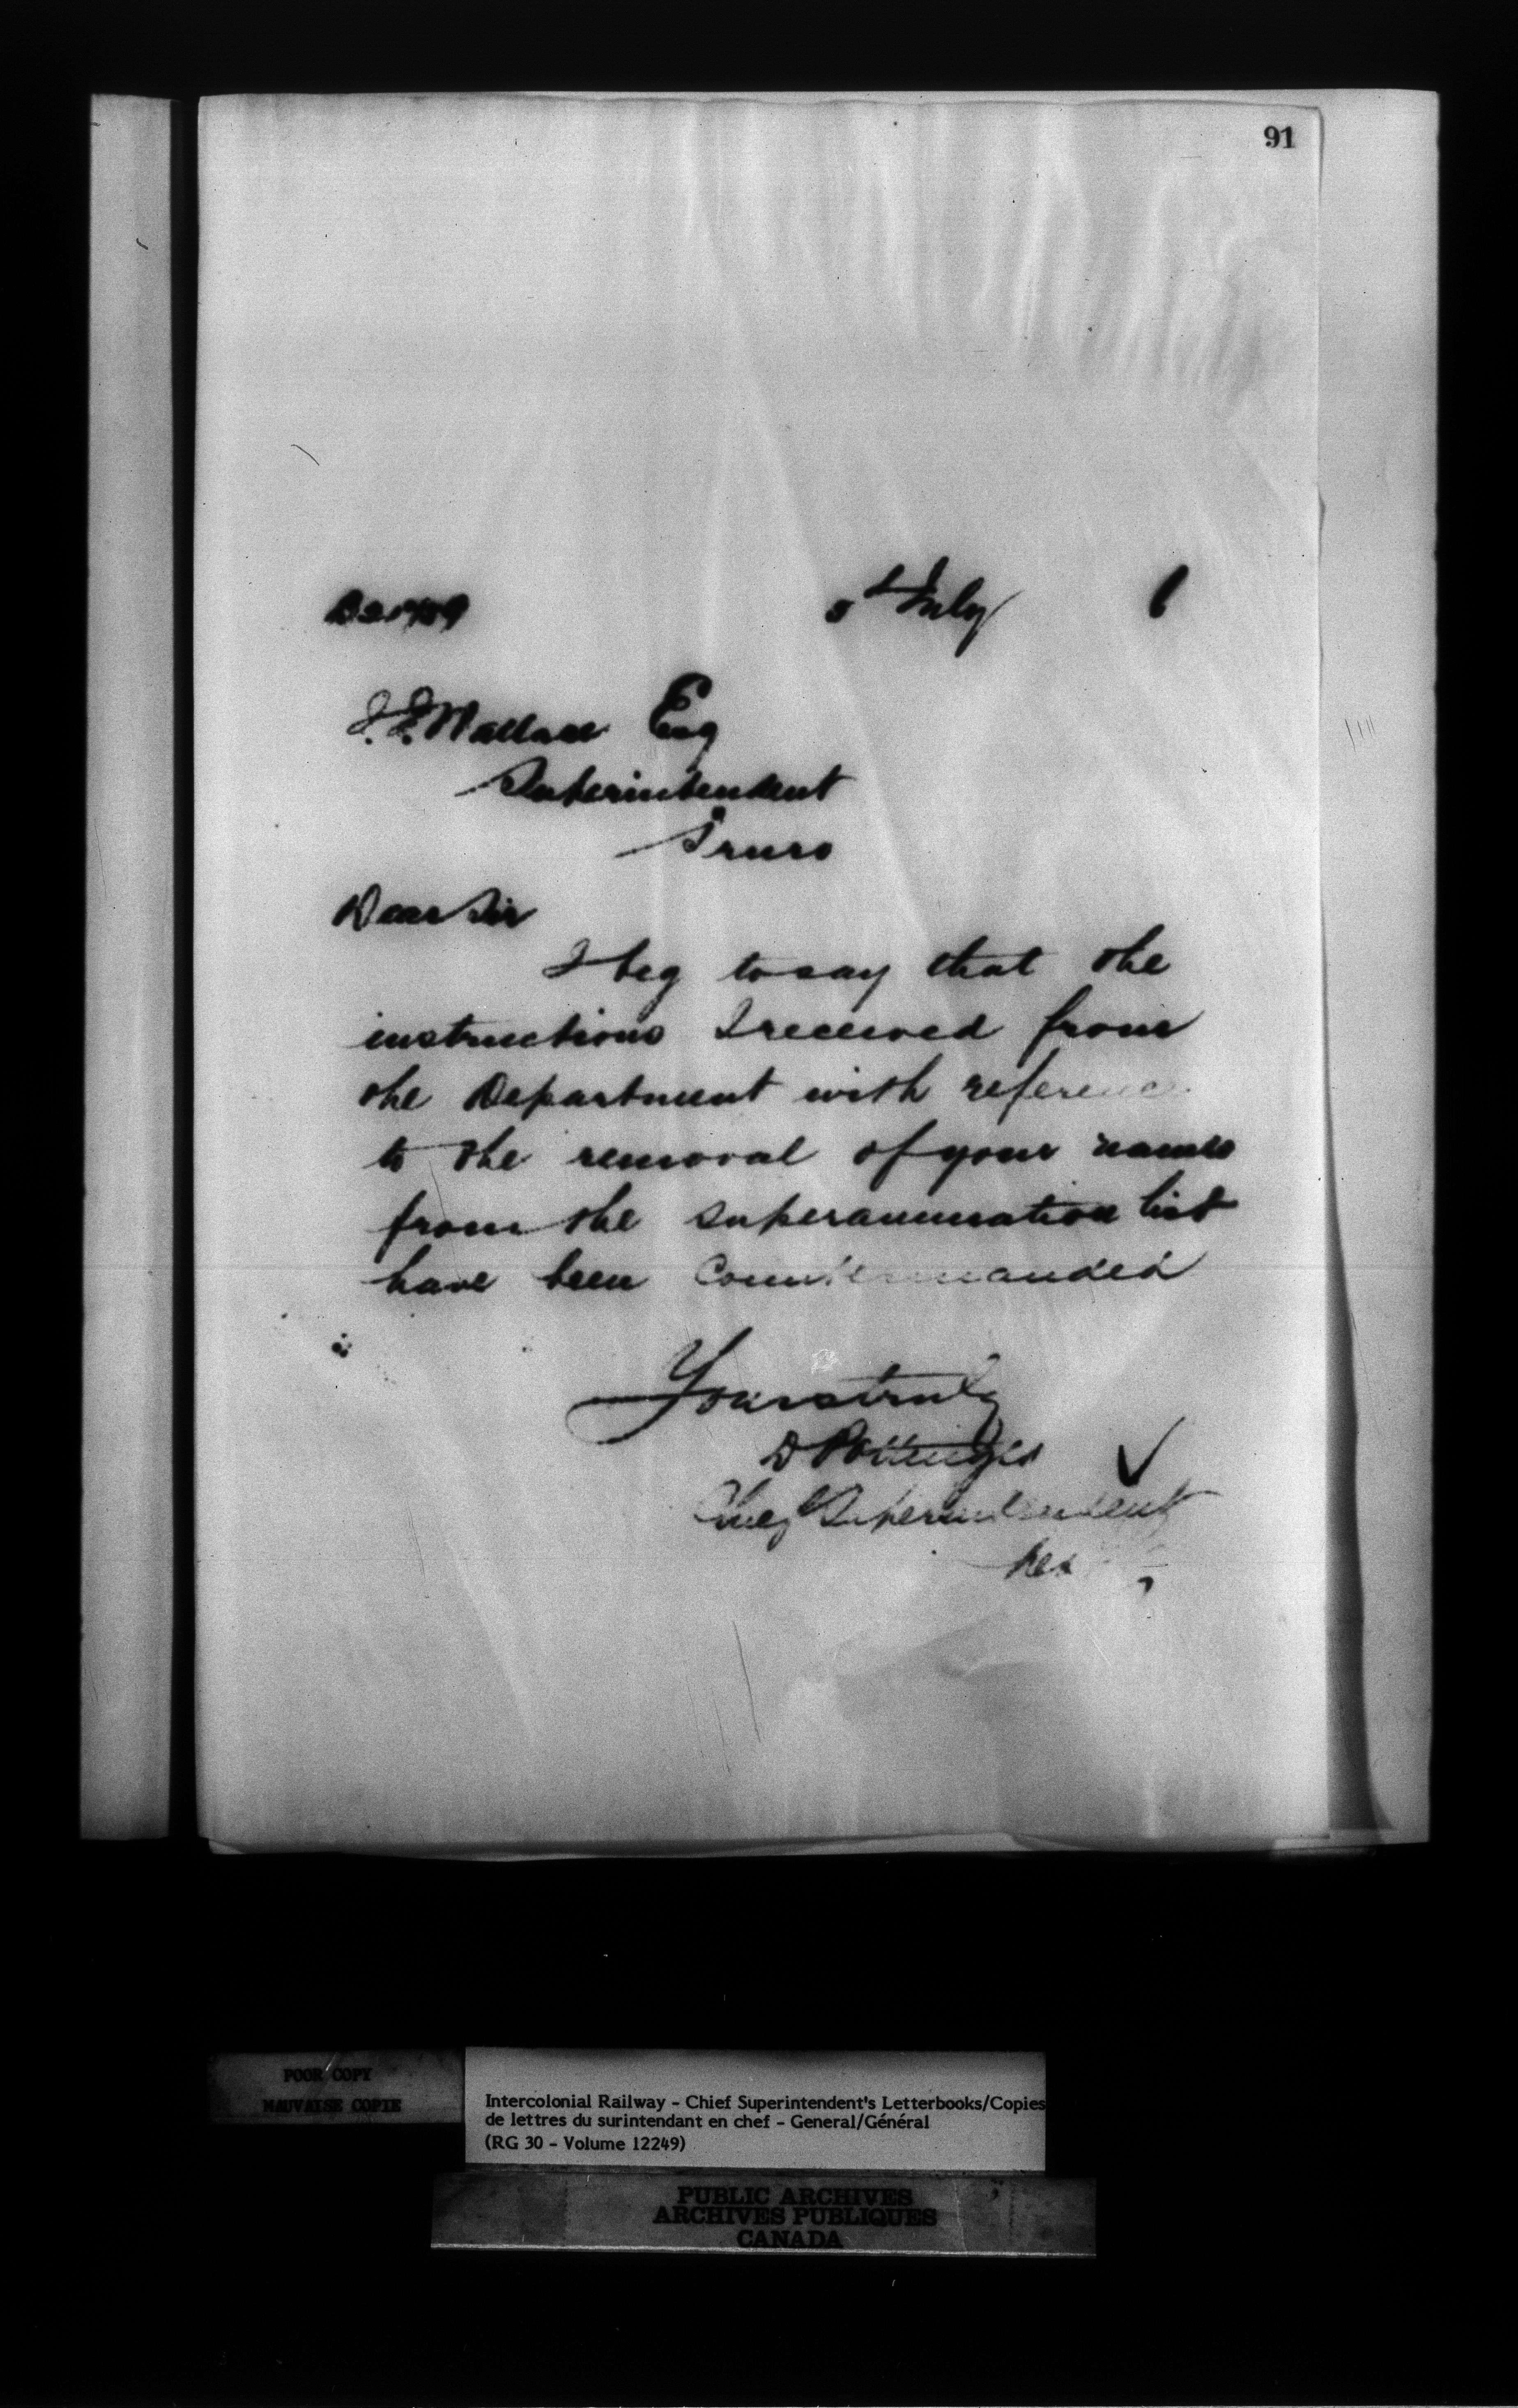 91
5th July 6
J. J. Wallace Esq
Superintendent
Truro
Dear Sir
I beg to say that the
instructions I received from
the Department with reference
to the removal of your names
from the superannuation list
have been Countermanded
Yours truly
D Pottinger
Chief Superintendent
POOR COPY
MAUVAISE COPIE
Intercolonial Railway - Chief Superintendent's Letterbooks/Copies
de lettres du surintendant en chef - General/Général
(RG 30 - Volume 12249)
PUBLIC ARCHIVES
ARCHIVES PUBLIQUES
CANADA